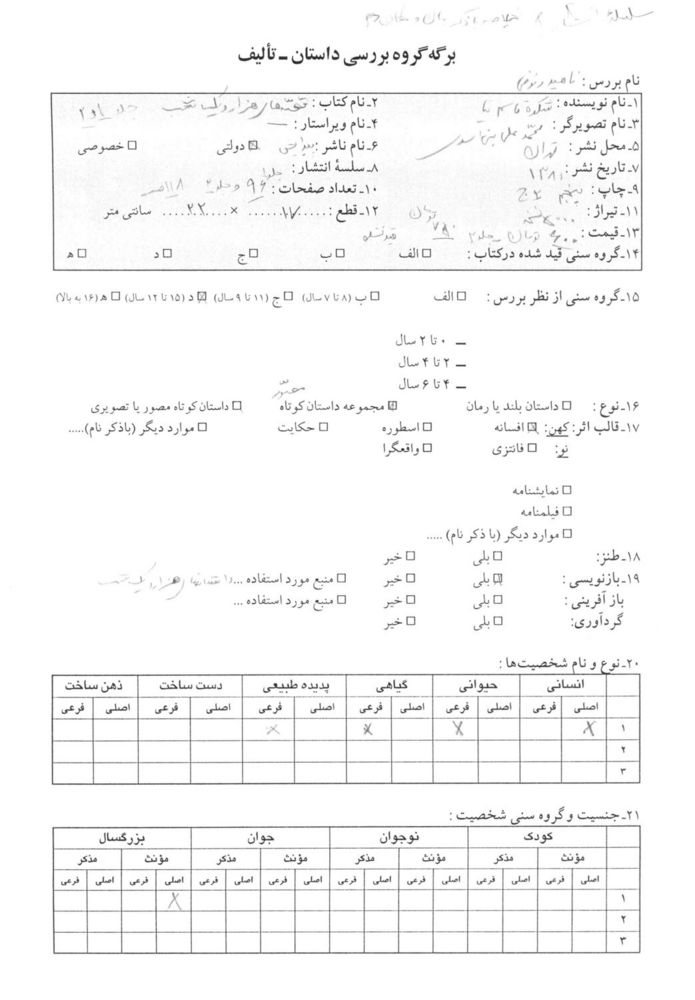 برگه گروه بررسی داستان ـ تألیف
نام بررس :
۱ـ نام نویسنده : شکوه قاسم نیا ۲ـ نام کتاب : قصّه‌های هزار و یک شب جلد ۱ و ۲
۳ـ نام تصویرگر : محمّد علی بنی اسدی ۴ـ نام ویراستار : —
۵ـ محل نشر : تهران ۶ـ نام ناشر : پیدایش ☒ دولتی ☐ خصوصی
۷ـ تاریخ نشر : ۱۳۸۱ ۸ـ سلسهٔ انتشار :
۹ـ چاپ : پنجم ۱۰ـ تعداد صفحات : جلد۱ ۹۶ و جلد۲
۱۱ـ تیراژ : ۵۰۰۰ نسخه ۱۲ـ قطع : ......۱۷...... × ......۲۲...... سانتی متر
۱۳ـ قیمت : ۶۰۰ تومان ـ جلد۲ ۷۸۰ تومان
۱۴ـ گروه سنی قید شده درکتاب : ☐ الف ☐ ب ☐ ج ☐ د ☐ ه قید نشده
۱۵ـ گروه سنی از نظر بررس : ☐ الف ☐ ب (۸ تا ۷ سال) ☐ ج (۱۱ تا ۹ سال) ☒ د (۱۵ تا ۱۲ سال) ☐ ه (۱۶ به بالا)
ــ ۰ تا ۲ سال
ــ ۲ تا ۴ سال
ــ ۴ تا ۶ سال
مصوّر
۱۶ـ نوع : ☐ داستان بلند یا رمان ☒ مجموعه داستان کوتاه ☐ داستان کوتاه مصور یا تصویری
۱۷ـ قالب اثر: کهن: ☒ افسانه ☐ اسطوره ☐ حکایت ☐ موارد دیگر (باذکر نام).....
نو: ☐ فانتزی ☐ واقعگرا
☐ نمایشنامه
☐ فیلمنامه
☐ موارد دیگر (با ذکر نام) .....
۱۸ـ طنز: ☐ بلی ☐ خیر
۱۹ـ بازنویسی : ☒ بلی ☐ خیر ☐ منبع مورد استفاده ... داستانهای هزار و یک شب
باز آفرینی : ☐ بلی ☐ خیر ☐ منبع مورد استفاده ...
گردآوری: ☐ بلی ☐ خیر
۲۰ـ نوع و نام شخصیت‌ها :
انسانی حیوانی گیاهی پدیده طبیعی دست ساخت ذهن ساخت
اصلی فرعی اصلی فرعی اصلی فرعی اصلی فرعی اصلی فرعی اصلی فرعی
۱ X X X X
۲
۳
۲۱ـ جنسیت و گروه سنی شخصیت :
کودک نوجوان جوان بزرگسال
مؤنث مذکر مؤنث مذکر مؤنث مذکر مؤنث مذکر
اصلی فرعی اصلی فرعی اصلی فرعی اصلی فرعی اصلی فرعی اصلی فرعی اصلی فرعی اصلی فرعی
۱ X
۲
۳